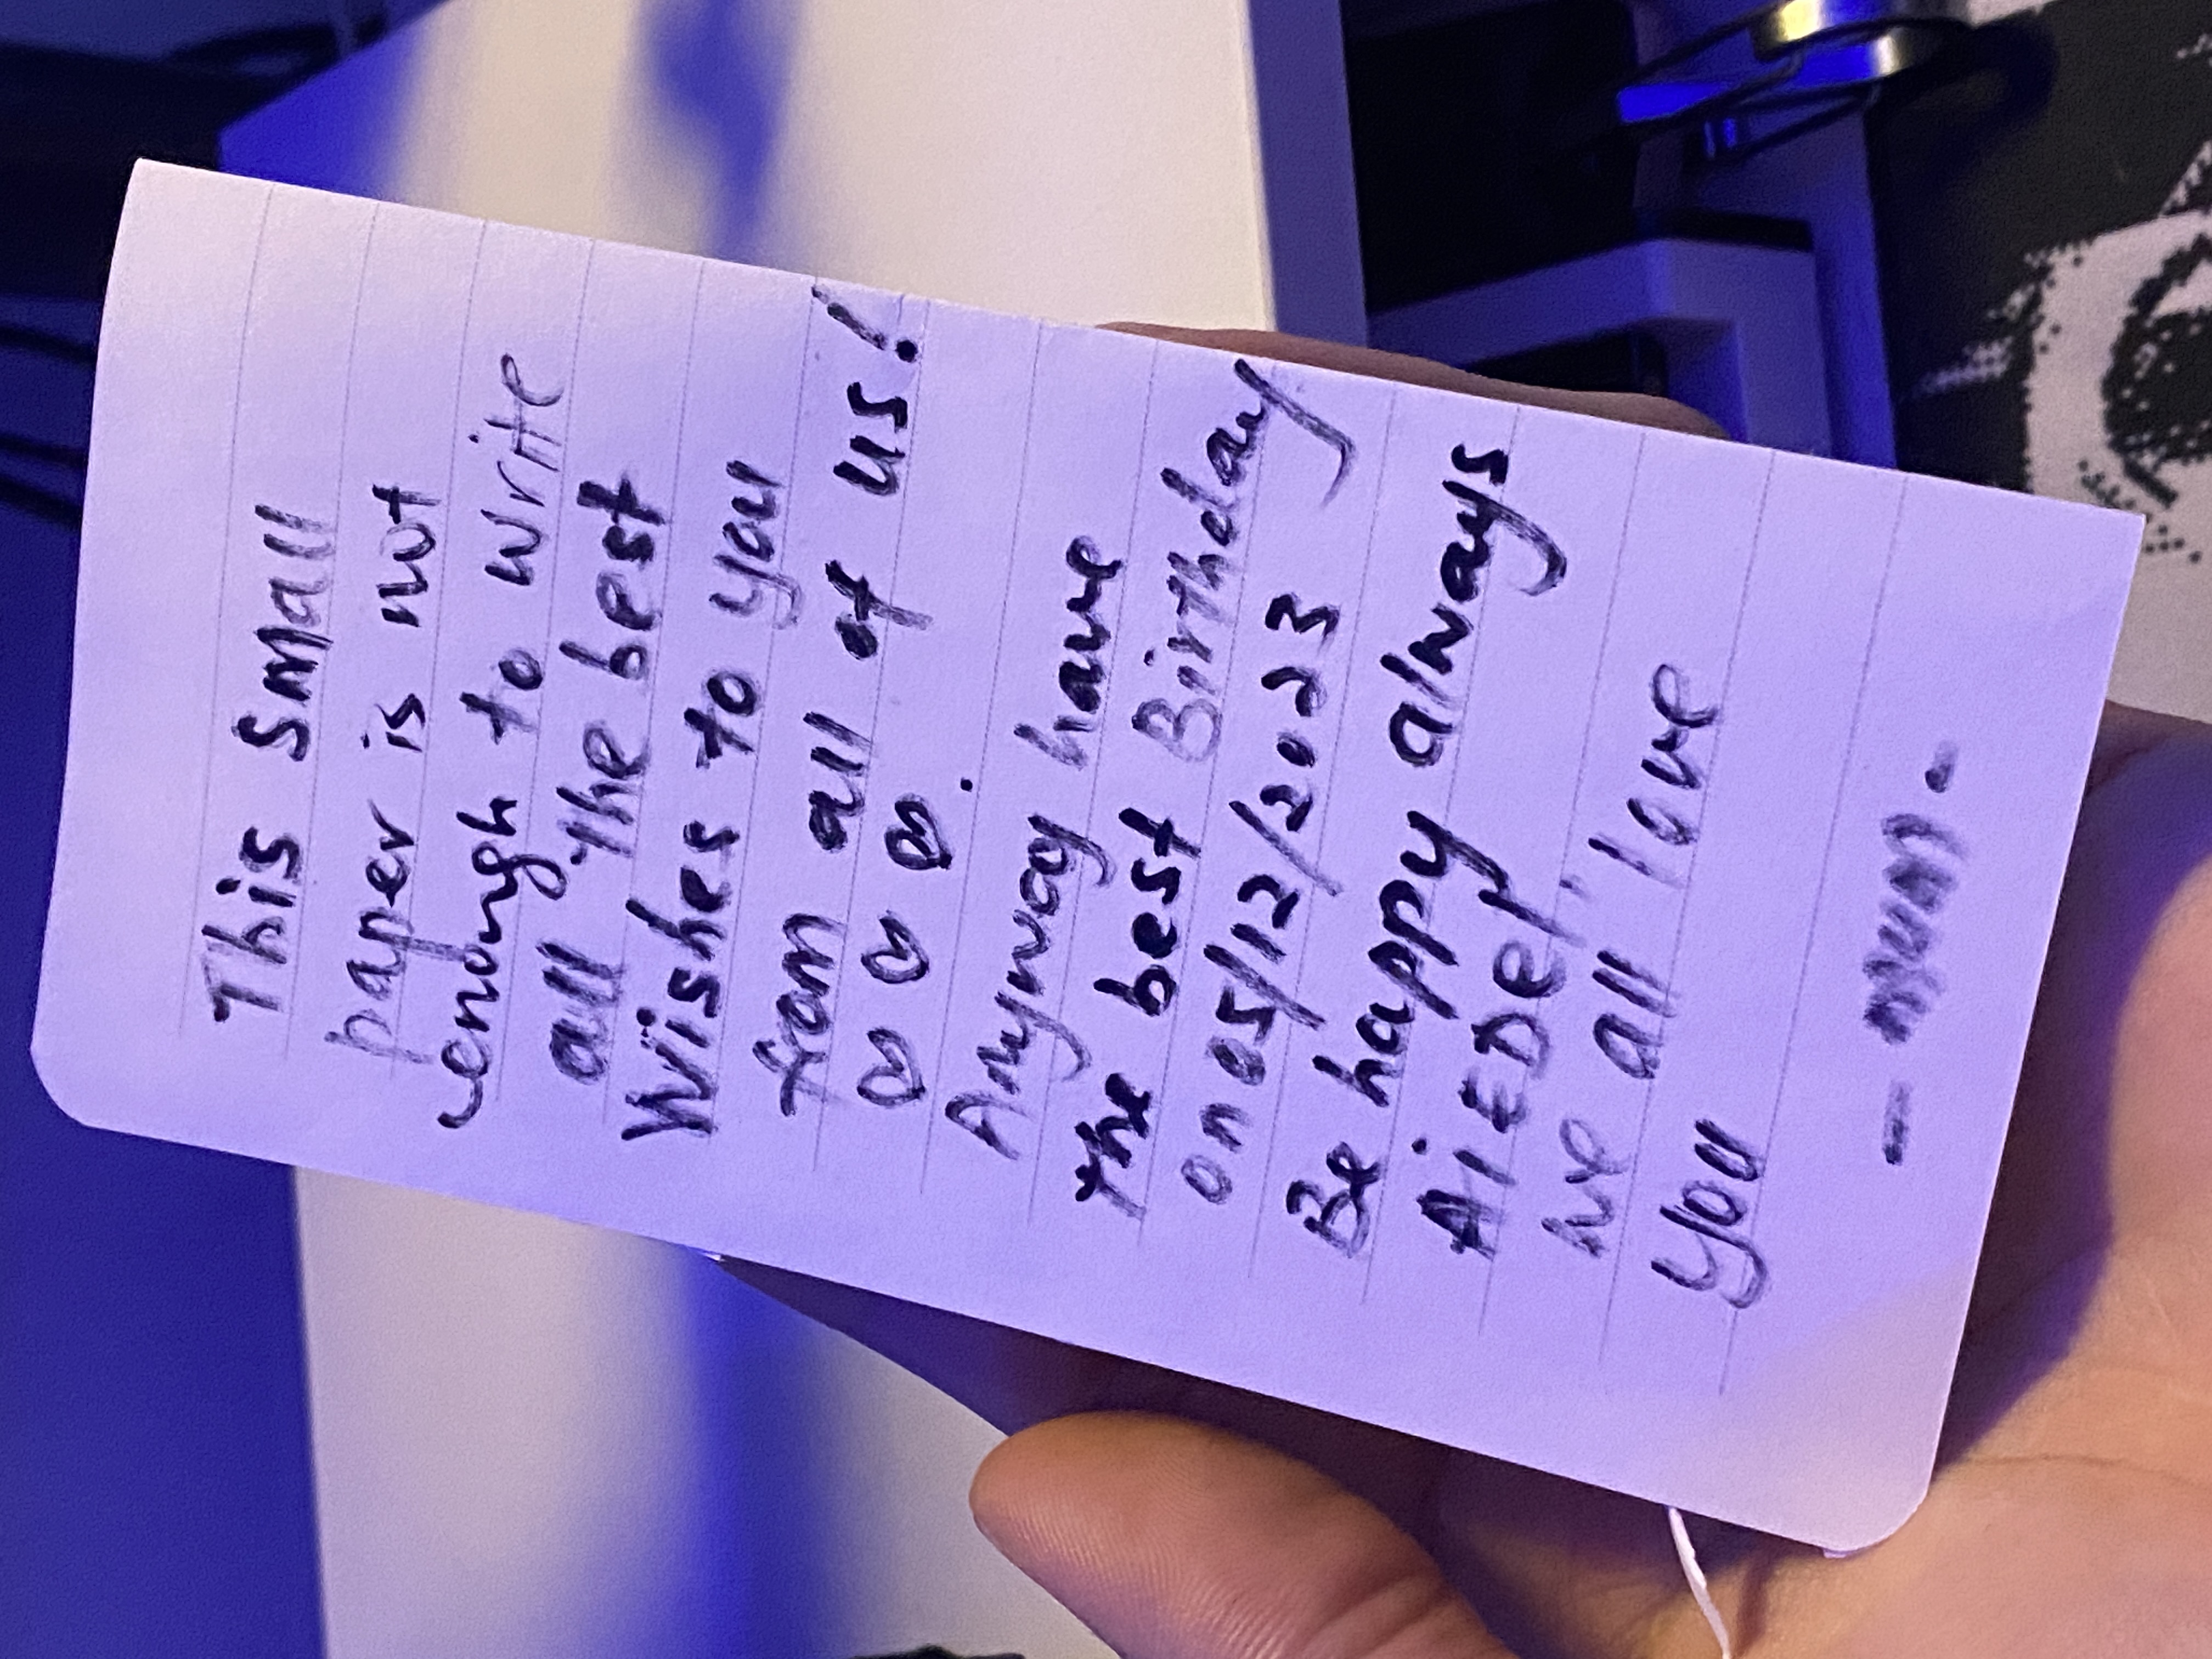 This small
paper is not
enough to write
all the best
Wishes to you
from all of us!
♡ ♡ ♡.
Anyway have
the best Birthday
on 05/12/2023
Be happy always
AiEDel.
we all love
you